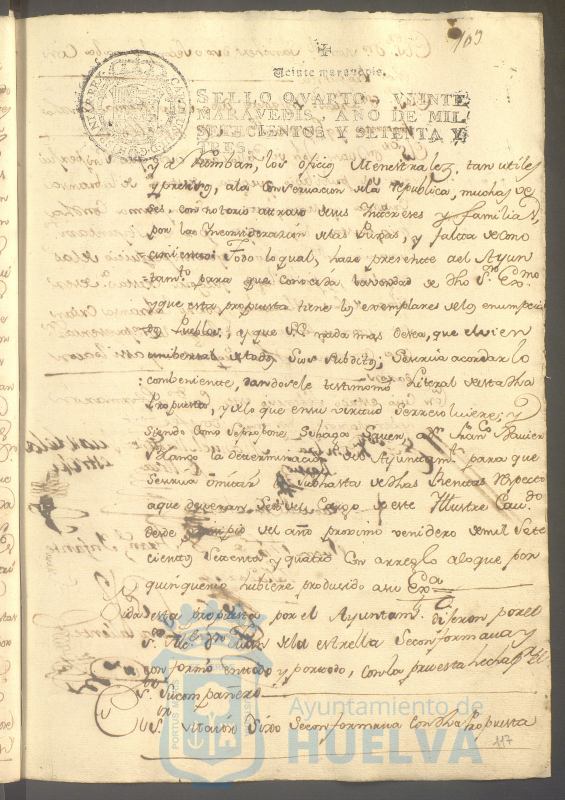 103
Veinte maravedis.
SELLO QVARTO, VEINTE
MARAVEDIS, AÑO DE MIL
SETECIENTOS Y SETENTA Y
TRES.
los oficios Menestrales, tan utiles
y presisos, ala Conservazion dela Republica, muchas ve-
ses, con notorio atraso desus Intereses y familias,
por las Inconsiderazion delas Puxas, y falta de cono
cimiento: Todo lo qual, hase presente ael Ayun
tamto. para que conocida la verdad de dho Sr. Exmo
y que esta propuesta tiene los exemplares delos enumpcia
dos Pueblos; y que S.E. nada mas desea, que el vien
unibersal de todos sus subditos; Se sirva acordar lo
combeniente, dandosele testimonio literal de esta dha
Propuesta, y delo que en su virtud se resolviere; y
siendo como se propone, se haga saver, a Dn. Franco. Xavier
la determinazion del Ayuntamto. para que
se sirva omitir subhasta de dhas Rentas respecto
aque deveran ser del Cargo de este Illustre Cavdo.
desde principio del año proximo venidero de mil sete
cientos setenta y quatro con arreglo alo que por
quinquenio hubiere producido a su Exa.
esta propuesta por el Ayuntamto. dixeron por el
Sr. dela estrella se conformava y
conformó en todo y por todo, con la propuesta hecha pr. el
Sr. su compañero
se conformava con dha Propuesta
PORTUS MARIS
Ayuntamiento de
HUELVA
117